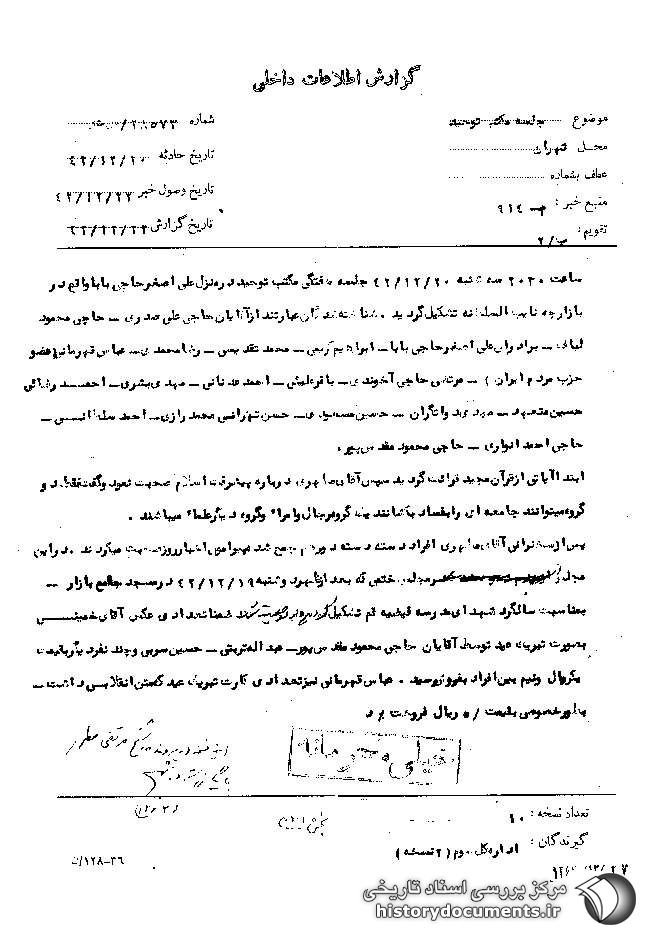 گزارش اطلاعات داخلی
موضوع جلسه مکتب توحید
محل تهران
عطف بشماره
منبع خبر : ۹۱۴
تقویم : ب/۲
شماره /۲۸۵۷۳
تاریخ حادثه ۴۲/۱۲/۲۰
تاریخ وصول خبر ۴۲/۱۲/۲۲
تاریخ گزارش ۴۲/۱۲/۲۴
ساعت ۲۰۳۰ سه شنبه ۴۲/۱۲/۲۰ جلسه هفتگی مکتب توحید در منزل علی اصغر حاجی بابا واقع در
بازارچه نایب السلطنه تشکیل گردید . شناخته شدگان عبارتند از آقایان حاجی علی صدری – حاجی محمود
– برادران علی اصغر حاجی بابا – ابراهیم کریمی – محمد تقدیس – رضا محمدی – عباس قهرمانی (عضو
حزب مردم ایران ) – مرتضی حاجی آخوندی – – احمد عدنانی – مهدی بشری – احمد رضائی
حسین متعهد – حسین مسعودی – حسن تهرانی محمد رازی – احمد –
حاجی احمد انواری – حاجی محمود مقدس پور .
ابتدا آیاتی از قرآن مجید قرائت گردید سپس آقای مطهری درباره پیشرفت اسلام صحبت نمود و گفت فقط دو
گروه میتوانند جامعه ای را بفساد بکشانند یک گروه رجال و امراء و گروه دیگر علماء میباشند .
پس از سخنرانی آقای مطهری افراد دسته دسته دور هم جمع شده پیرامون اخبار روز صحبت میکردند . در این
مجلس مجلس ختمی که بعد از ظهر دوشنبه ۴۲/۱۲/۱۹ در مسجد جامع بازار –
بمناسبت سالگرد شهدای مدرسه فیضیه قم تشکیل ضمنا تعدادی عکس آقای خمینی
بصورت تبریک عید توسط آقایان حاجی محمود مقدس پور – عبداله تربتی – حسین و چند نفر دیگر بقیمت
یکریال و نیم بین افراد بفروش رسید . عباس قهرمانی نیز تعدادی کارت تبریک عید که متن انقلابی داشت –
بطور خصوصی بقیمت /۵ ریال فروخته بود
خیلی محرمانه
تعداد نسخه : ۱۰
گیرندگان : اداره کل سوم ( ۲ نسخه )
۱۲۸-۳۶/ت
مرکز بررسی اسناد تاریخی
historydocuments.ir